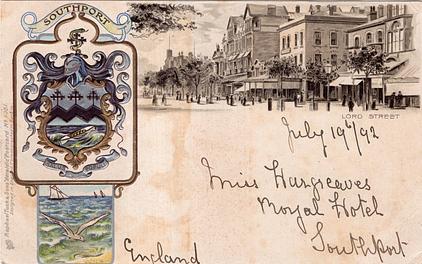 SOUTHPORT
LORD STREET
July 19th/92
Miss Hargreaves
Royal Hotel
Southport
England